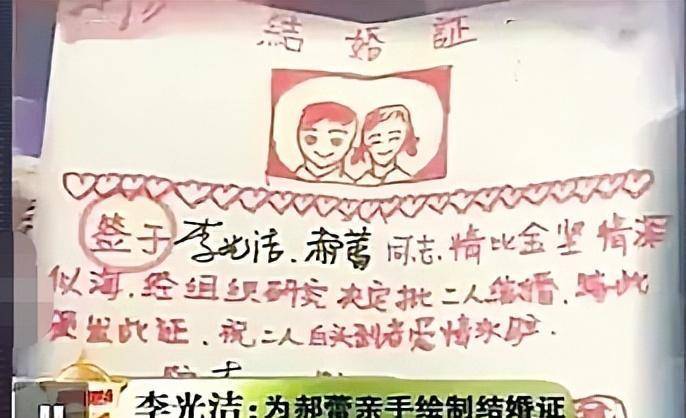 結婚証
签于李光洁、郝蕾同志,情比金坚情深
似海,经组织研究决定批二人结婚,特此
颁发此证,祝二人白头到老爱情永驻.
李光洁:为郝蕾亲手绘制结婚证